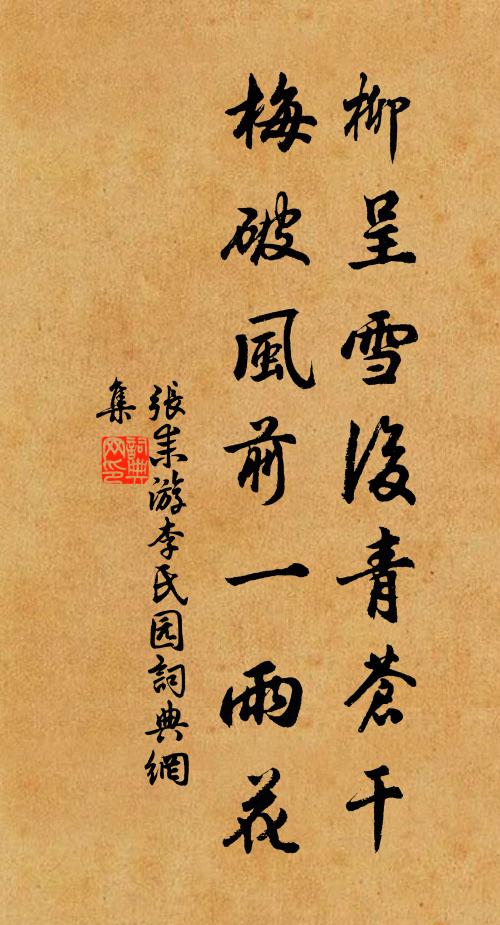 柳呈雪後青蒼干
梅破風前一兩花
張耒游李氏园詞典網
集
詞典网印